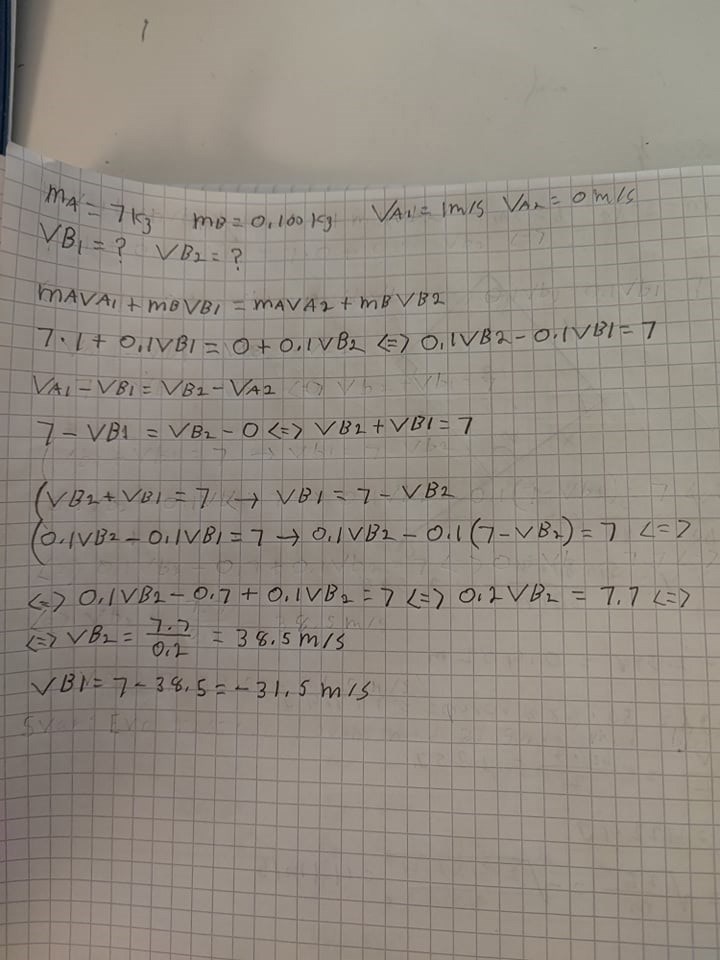 mA = 7kg mB = 0.100 kg VA1 = 1m/s VA2 = 0 m/s
VB1 = ? VB2 = ?
mAVA1 + mBVB1 = mAVA2 + mBVB2
7·1 + 0.1VB1 = 0 + 0.1VB2 <=> 0.1VB2 - 0.1VB1 = 7
VA1 - VB1 = VB2 - VA2
7 - VB1 = VB2 - 0 <=> VB2 + VB1 = 7
(VB2 + VB1 = 7 → VB1 = 7 - VB2
(0.1VB2 - 0.1VB1 = 7 → 0.1VB2 - 0.1(7 - VB2) = 7 <=>
<=> 0.1VB2 - 0.7 + 0.1VB2 = 7 <=> 0.2VB2 = 7.7 <=>
<=> VB2 = 7.7/0.2 = 38.5 m/s
VB1 = 7 - 38.5 = -31.5 m/s